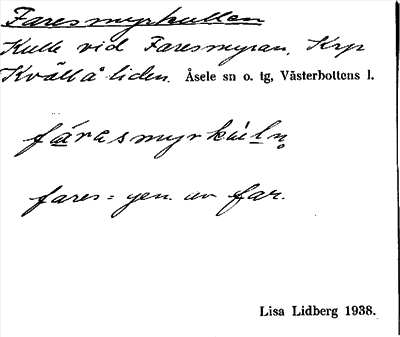 Faresmyrkullen
Kulle vid Faresmyran, Krp
Kvällåliden. Åsele sn o. tg, Västerbottens l.
fares = gen. av far.
Lisa Lidberg 1938.